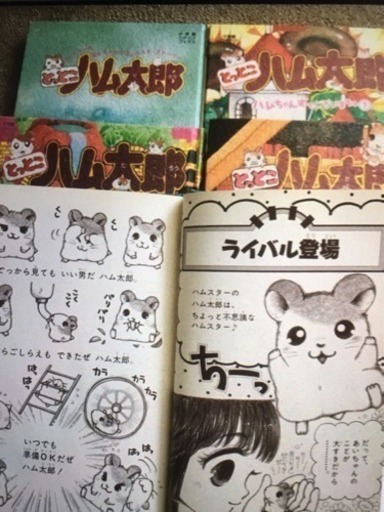 とっとこ
ハム太郎
とっとこ
ハム太郎
とっとこ
ハム太郎
とっとこ
ハム太郎
ライバル登場
ハムスターの
ハム太郎は、
ちょっと不思議な
ハムスター♪
ちーっ
だって、
あいちゃん
ことが
大すきだから
てっから見ても いい男だ ハム太郎。
パリパリ
らごしらえも できたぜ ハム太郎。
はっ
はっ
カラ
カラ
カラ
いつでも
準備OKだぜ
ハム太郎!
はっ
はっ